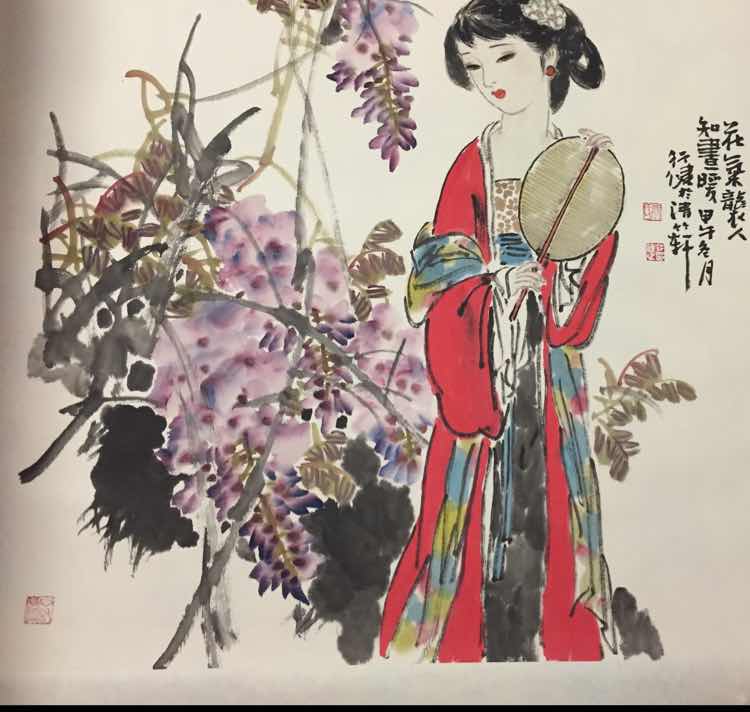 花氣襲人
知晝暖 甲午冬月
行健於清竹軒